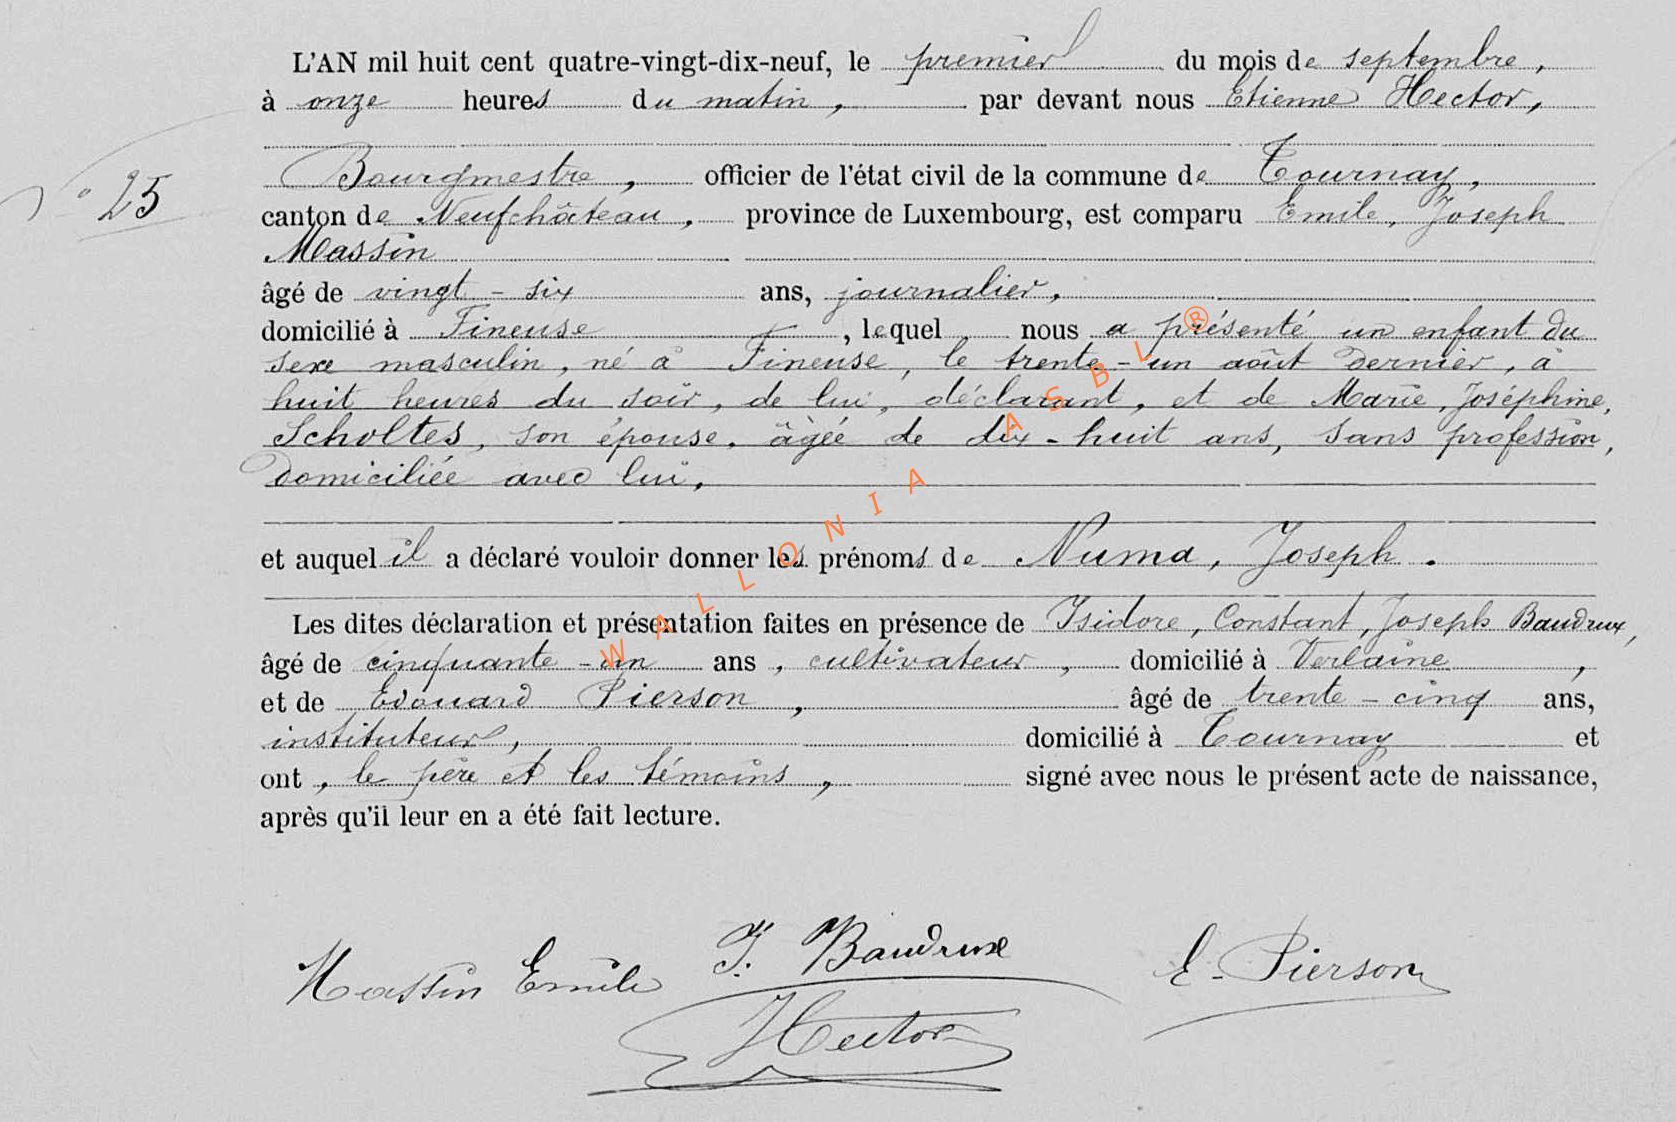 L'AN mil huit cent quatre-vingt-dix-neuf, le premier du mois de septembre,
à onze heures du matin, par devant nous Etienne Hector,
N° 25
Bourgmestre, officier de l'état civil de la commune de Tournay,
canton de Neufchâteau, province de Luxembourg, est comparu Emile, Joseph
Massin
âgé de vingt-six ans, journalier,
domicilié à Fineuse, lequel nous a présenté un enfant du
sexe masculin, né à Fineuse, le trente-un août dernier, à
huit heures du soir, de lui, déclarant, et de Marie, Joséphine,
Scholtes, son épouse, âgée de dix-huit ans, sans profession,
domiciliée avec lui,
et auquel il a déclaré vouloir donner les prénoms de Numa, Joseph.
Les dites déclaration et présentation faites en présence de Isidore, Constant, Joseph Baudrux,
âgé de cinquante-un ans, cultivateur, domicilié à Verlaine,
et de Edouard Pierson, âgé de trente-cinq ans,
instituteur, domicilié à Tournay et
ont, le père et les témoins, signé avec nous le présent acte de naissance,
après qu'il leur en a été fait lecture.
Massin Emile J. Baudrux E. Pierson
Hector
WALLONIA ASBL ®